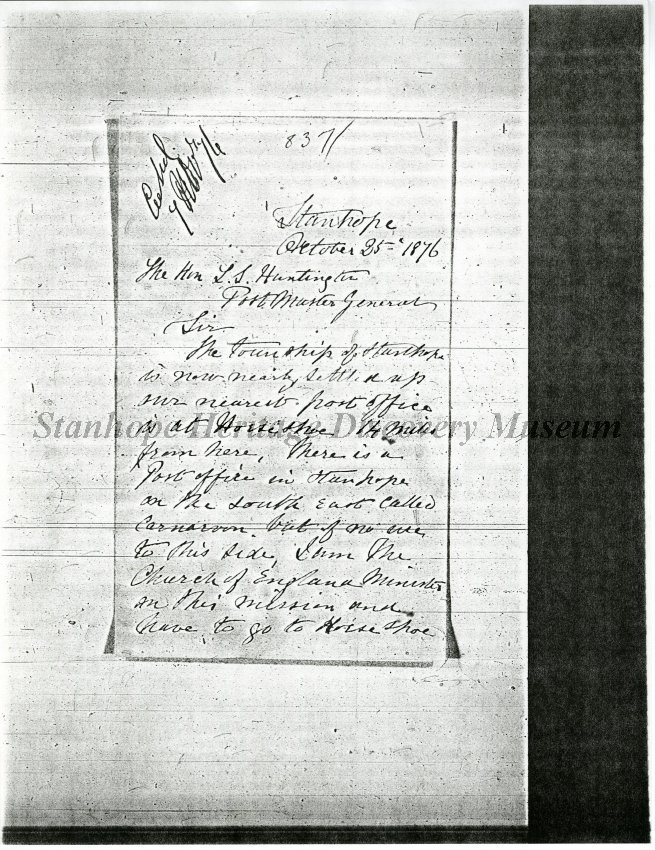 837/
Stanhope
October 25th 1876
The Hon L.S. Huntington
Post Master General
Sir
The township of Stanhope
is now nearly settled up
our nearest post office
is at Horse Shoe 14 miles
Stanhope Heritage Discovery Museum
from here, There is a
Post office in Stanhope
on the South East called
Carnarvon but of no use
to this side, I am the
Church of England Minister
on this mission and
have to go to Horse Shoe